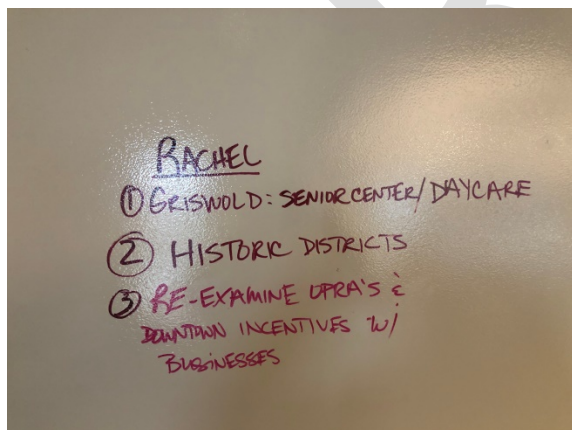 RACHEL
① GRISWOLD: SENIOR CENTER/DAYCARE
② HISTORIC DISTRICTS
③ RE-EXAMINE OPRA'S &
DOWNTOWN INCENTIVES W/
BUSINESSES